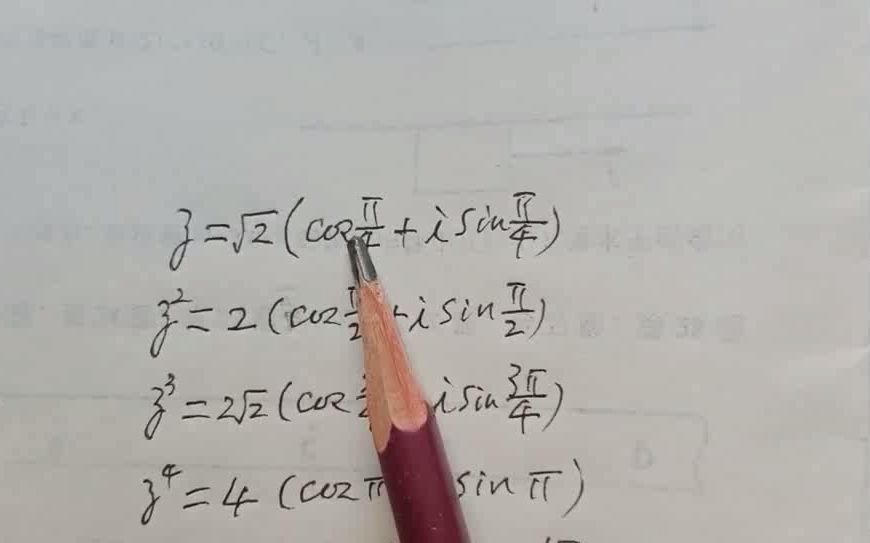 z = √2 (cos π/4 + i sin π/4)
z² = 2 (cos π/2 + i sin π/2)
z³ = 2√2 (cos i sin 3π/4)
z⁴ = 4 (cos π sin π)